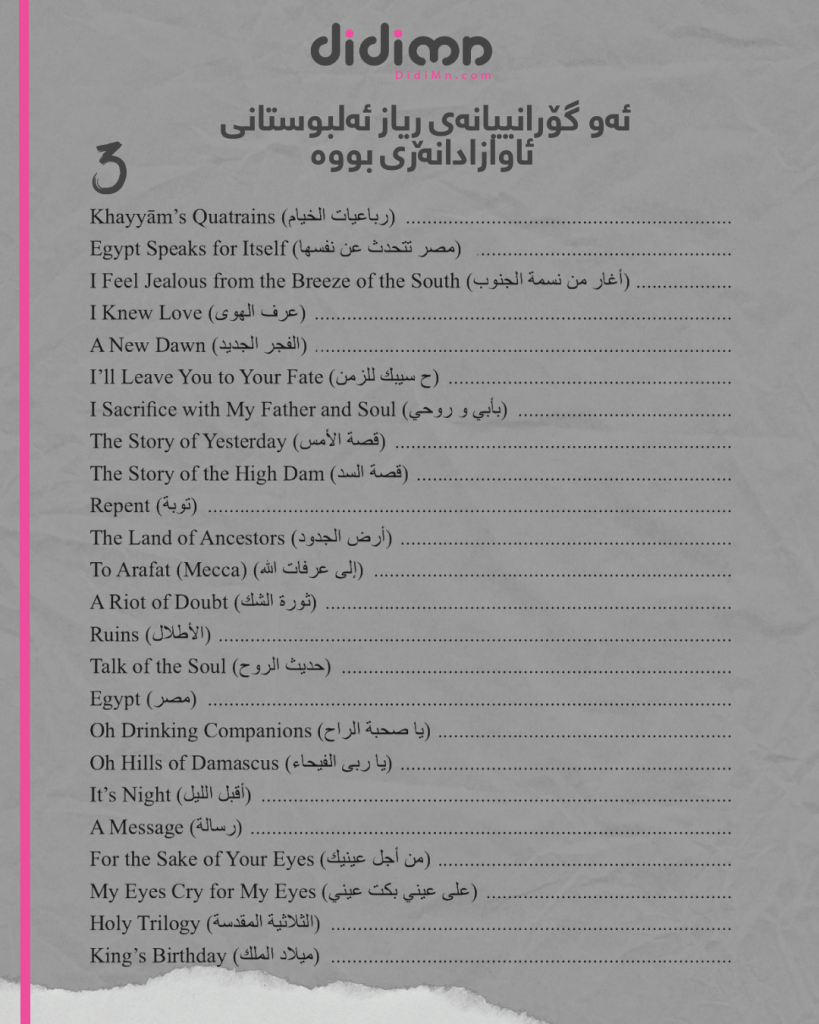 didimn
DidiMn.com
ئەو گۆرانییانەی ریاز ئەلبوستانی
ئاوازادانەڕی بووە
3
Khayyām’s Quatrains (رباعيات الخيام) ..............................................................
Egypt Speaks for Itself (مصر تتحدث عن نفسها) ................................................
I Feel Jealous from the Breeze of the South (أغار من نسمة الجنوب) ..................
I Knew Love (عرف الهوى) ................................................................................
A New Dawn (الفجر الجديد) ................................................................................
I’ll Leave You to Your Fate (ح سيبك للزمن) ......................................................
I Sacrifice with My Father and Soul (بأبي و روحي) .........................................
The Story of Yesterday (قصة الأمس) ................................................................
The Story of the High Dam (قصة السد) ............................................................
Repent (توبة) ....................................................................................................
The Land of Ancestors (أرض الجدود) ...............................................................
To Arafat (Mecca) (إلى عرفات الله) ....................................................................
A Riot of Doubt (ثورة الشك) .............................................................................
Ruins (الأطلال) .................................................................................................
Talk of the Soul (حديث الروح) ..........................................................................
Egypt (مصر) ....................................................................................................
Oh Drinking Companions (يا صحبة الراح) ........................................................
Oh Hills of Damascus (يا ربى الفيحاء) ...............................................................
It’s Night (أقبل الليل) .........................................................................................
A Message (رسالة) ...........................................................................................
For the Sake of Your Eyes (من أجل عينيك) ........................................................
My Eyes Cry for My Eyes (على عيني بكت عيني) ...............................................
Holy Trilogy (الثلاثية المقدسة) ............................................................................
King’s Birthday (ميلاد الملك) ............................................................................